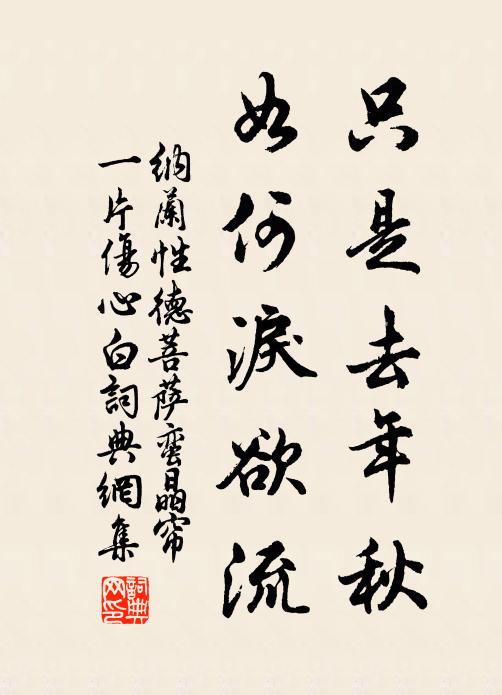 只是去年秋
如何淚欲流
納蘭性德菩薩蠻晶帘
一片傷心白詞典網集
詞典
网印